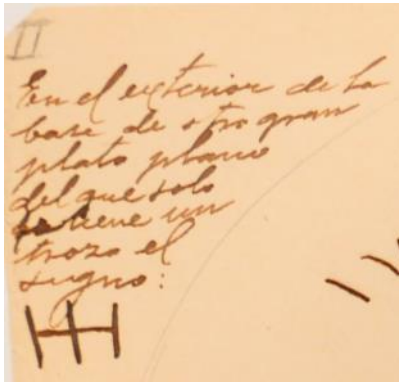 II
En el exterior de la
base de otro gran
plato plano
del que solo
se tiene un
trozo el
signo: